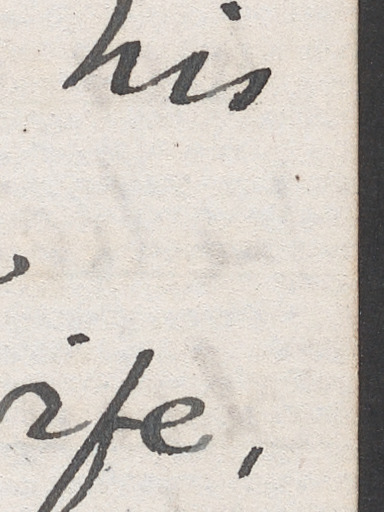 his
ife,